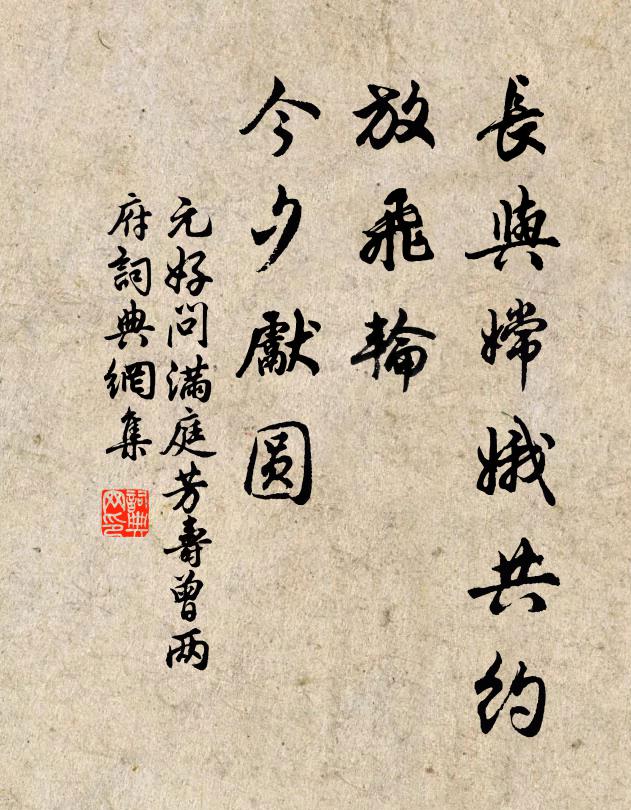 長與嫦娥共約
放飛輪
今夕獻圆
元好问满庭芳壽曾两
府詞典網集
詞典
网印